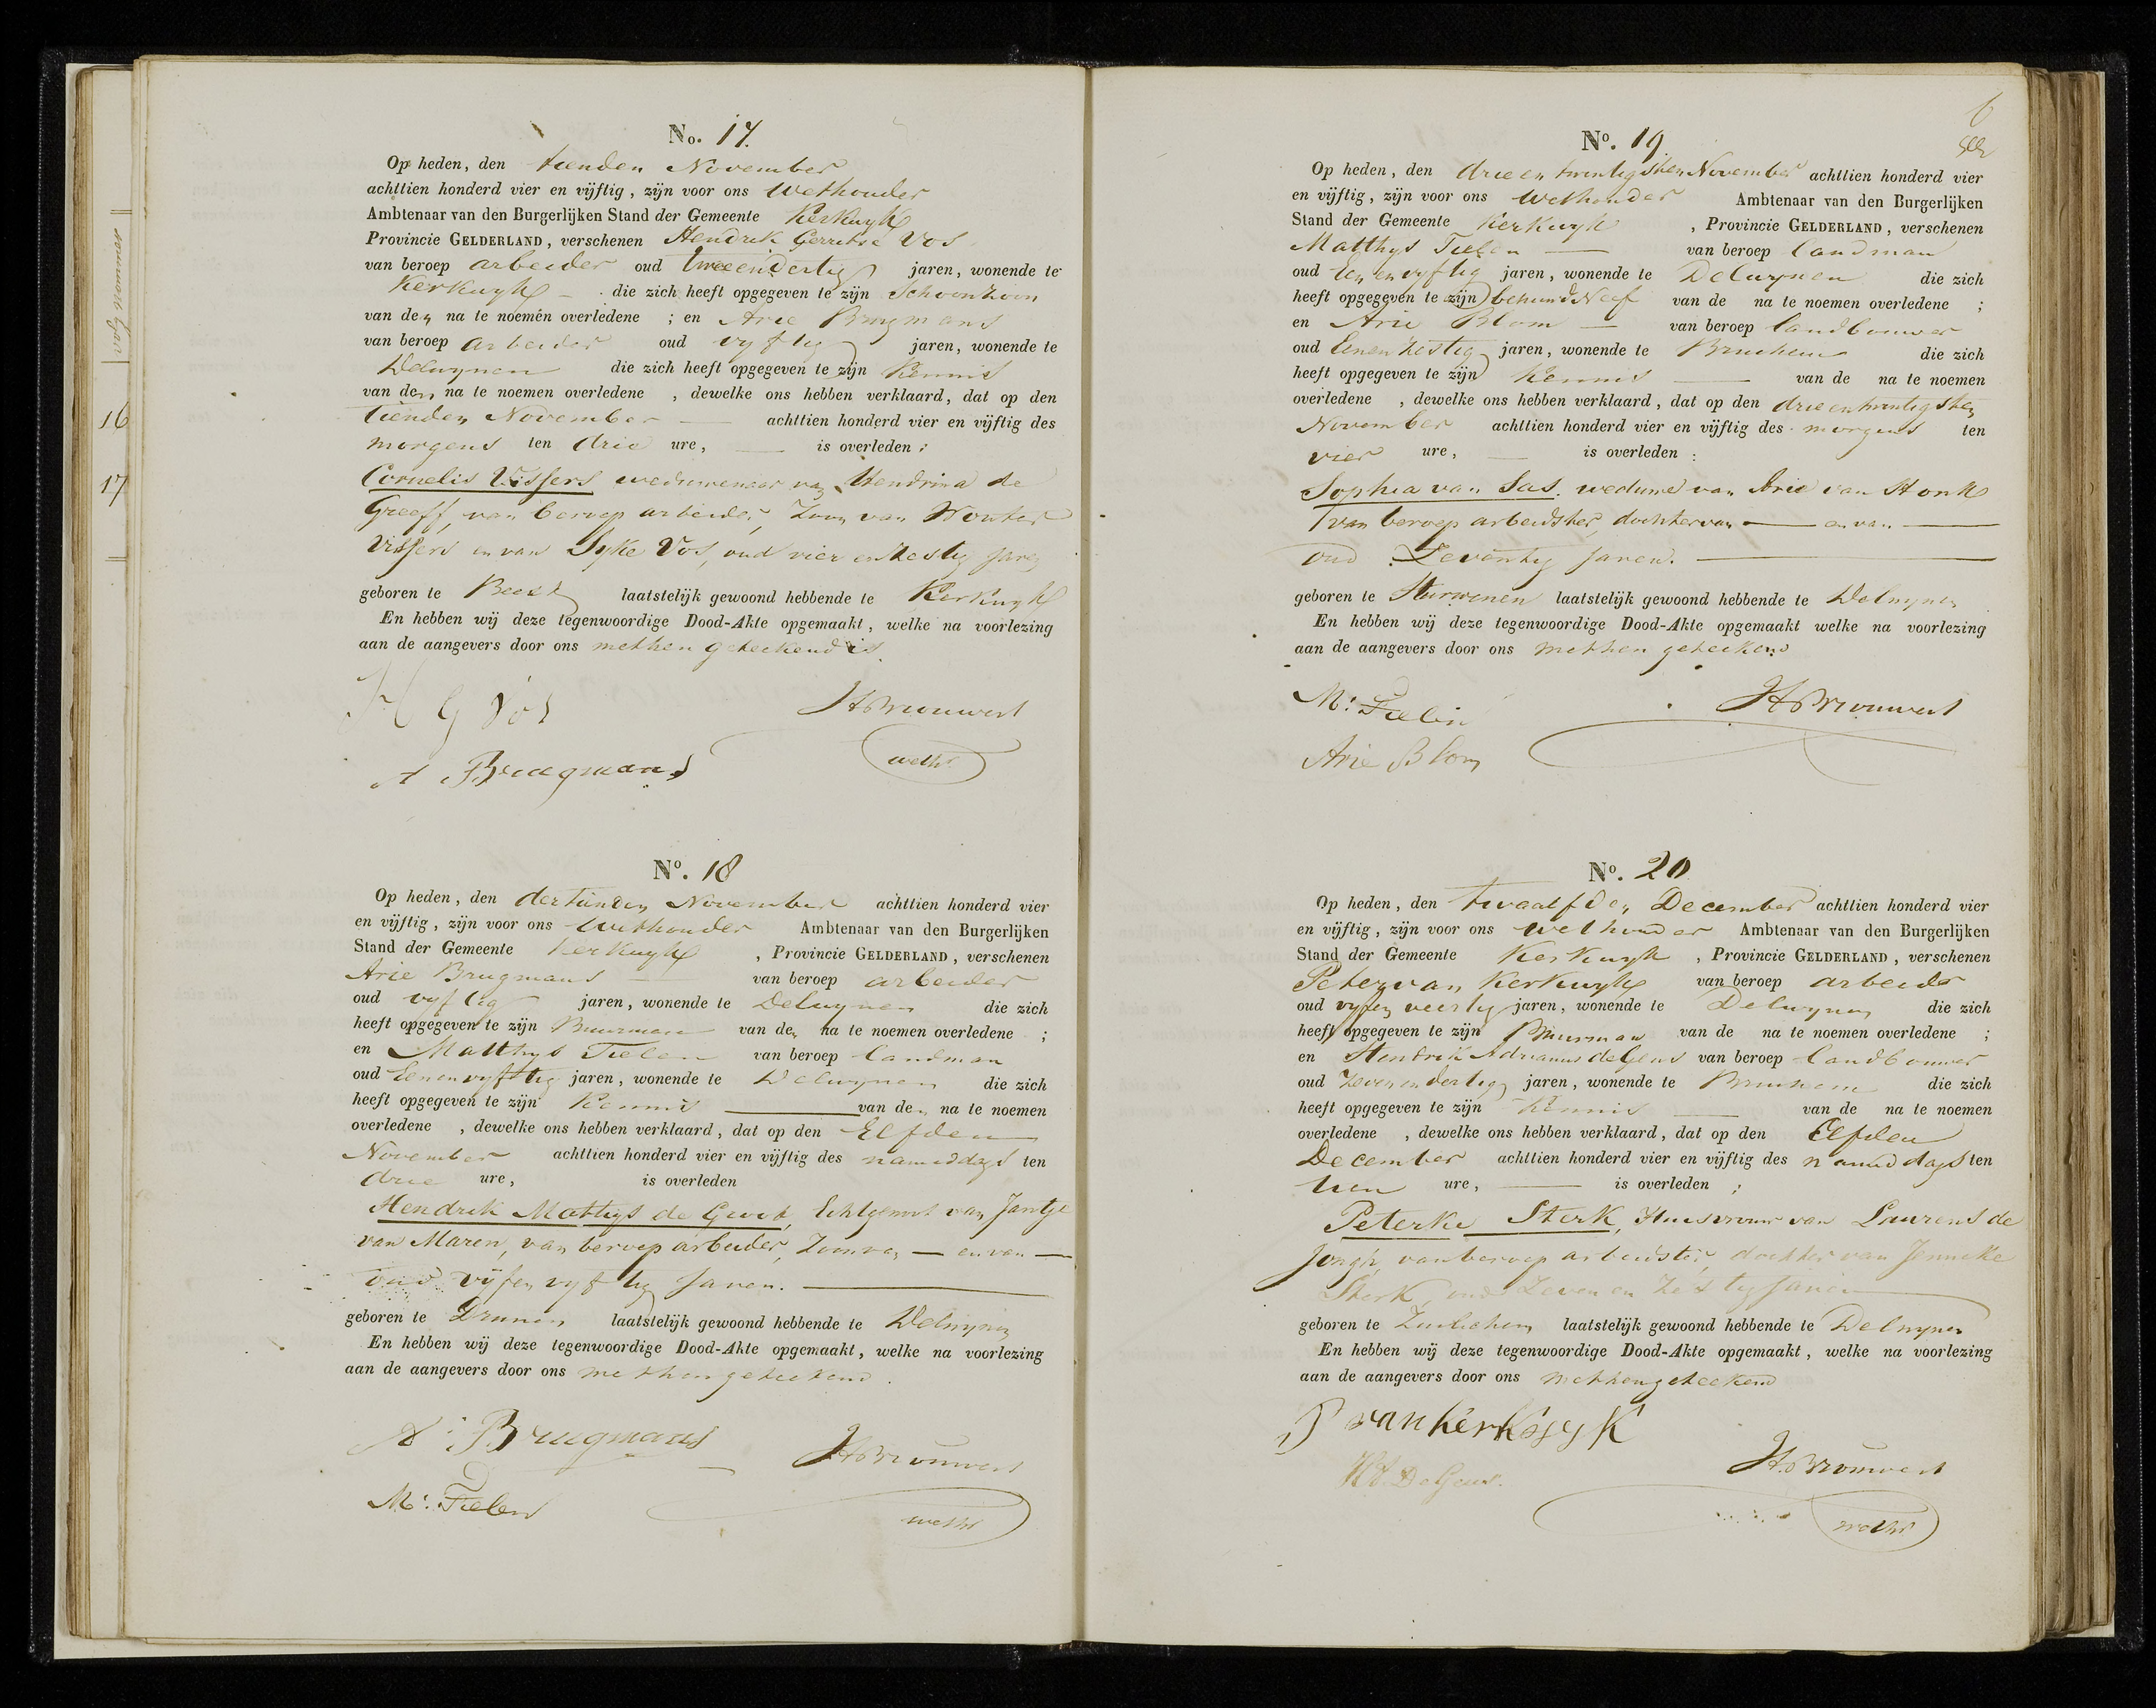 16
17
No. 17.
Op heden, den tienden November
achttien honderd vier en vijftig, zijn voor ons Wethouder
Ambtenaar van den Burgerlijken Stand der Gemeente Kerkwyk
Provincie GELDERLAND, verschenen Hendrik Gerritse Vos
van beroep arbeider oud tweeendertig jaren, wonende te
Kerkwyk die zich heeft opgegeven te zijn Schoonzoon
van den na te noemen overledene ; en Arie Brugmans
van beroep arbeider oud vyftig jaren, wonende te
Delwynen die zich heeft opgegeven te zijn Kennis
van den na te noemen overledene , dewelke ons hebben verklaard, dat op den
tienden November — achttien honderd vier en vijftig des
morgens ten drie ure, — is overleden :
Cornelis Vissers weduwenaar van Hendrina de
Greeff, van beroep arbeider, Zoon van Wouter
Vissers en van Syke Vos, oud vier en zestig jaren
geboren te Beest laatstelijk gewoond hebbende te Kerkwyk
En hebben wij deze tegenwoordige Dood-Akte opgemaakt, welke na voorlezing
aan de aangevers door ons met hen geteekend is.
H G Vos
HBrouwers
A Bruegmans
wethr
No. 18
Op heden, den dertienden November achttien honderd vier
en vijftig, zijn voor ons Wethouder Ambtenaar van den Burgerlijken
Stand der Gemeente Kerkwyk , Provincie GELDERLAND, verschenen
Arie Brugmans — van beroep arbeider
oud vyftig jaren, wonende te Delwynen die zich
heeft opgegeven te zijn Buurman van den na te noemen overledene ;
en Matthys Tielen van beroep landman
oud Eenenvyftig jaren, wonende te Delwynen die zich
heeft opgegeven te zijn Kennis — van den na te noemen
overledene , dewelke ons hebben verklaard, dat op den Elfden
November achttien honderd vier en vijftig des namiddags ten
drie ure, is overleden
Hendrik Mathys de Groot, Echtgenoot van Jantje
van Maren, van beroep arbeider, Zoon van — en van —
oud vijfen vyftig Jaren. —
geboren te Drunen laatstelijk gewoond hebbende te Delwynen
En hebben wij deze tegenwoordige Dood-Akte opgemaakt, welke na voorlezing
aan de aangevers door ons met hen geteekend.
A: Brugmans
HBrouwers
M: Tielen
wethr
6
No. 19.
Op heden, den drie en twintigsten November achttien honderd vier
en vijftig, zijn voor ons Wethouder Ambtenaar van den Burgerlijken
Stand der Gemeente Kerkwyk , Provincie GELDERLAND, verschenen
Matthys Tielen — van beroep landman
oud Eenenvyftig jaren, wonende te Delwynen die zich
heeft opgegeven te zijn behuwd Neef van de na te noemen overledene ;
en Arie Blom — van beroep landbouwer
oud Eenenzestig jaren, wonende te Bruchem die zich
heeft opgegeven te zijn Kennis — van de na te noemen
overledene , dewelke ons hebben verklaard, dat op den drieentwintigsten
November achttien honderd vier en vijftig des morgens ten
vier ure, — is overleden :
Sophia van Sas. weduwe van Arie van Honk
van beroep arbeidster, dochter van — en van —
oud Zeventig Jaren. —
geboren te Hurwenen laatstelijk gewoond hebbende te Delwynen
En hebben wij deze tegenwoordige Dood-Akte opgemaakt welke na voorlezing
aan de aangevers door ons met hen geteekend
M: Tielen
HBrouwers
Arie Blom
No. 20
Op heden, den twaalfden December achttien honderd vier
en vijftig, zijn voor ons wethouder Ambtenaar van den Burgerlijken
Stand der Gemeente Kerkwyk , Provincie GELDERLAND, verschenen
Peter van Kerkwyk van beroep arbeider
oud vyfen veertig jaren, wonende te Delwynen die zich
heeft opgegeven te zijn Buurman van de na te noemen overledene ;
en Hendrik Adrianus de Geus van beroep landbouwer
oud Zevenendertig jaren, wonende te Bruchem die zich
heeft opgegeven te zijn Kennis — van de na te noemen
overledene , dewelke ons hebben verklaard, dat op den Elfden
December achttien honderd vier en vijftig des namiddags ten
tien ure, — is overleden ;
Peterke Sterk, Huisvrouw van Laurens de
Jongh, van beroep arbeidster, dochter van Jenneke
Sterk, oud Zeven en Zestig Jaren
geboren te Zuilichem laatstelijk gewoond hebbende te Delwynen
En hebben wij deze tegenwoordige Dood-Akte opgemaakt, welke na voorlezing
aan de aangevers door ons met hen geteekend
P van Kerkwyk
HBrouwers
HA De Geus.
wethr